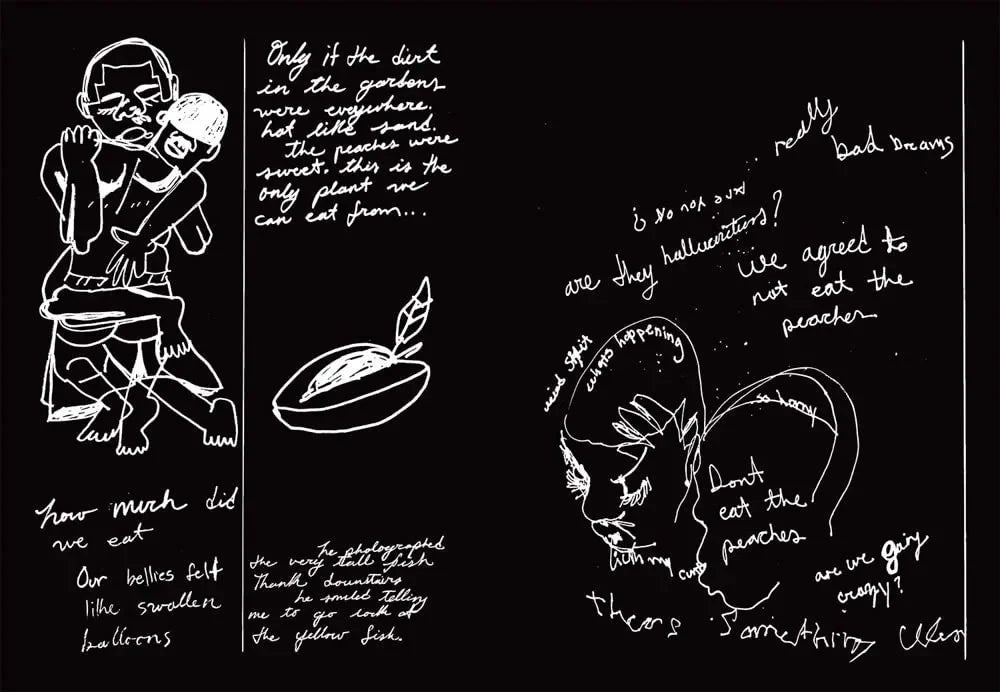 how much did
we eat
Our bellies felt
lihe swollen
balloons
Only if the dirt
in the gardens
were everywhere.
hot like sand.
the peaches were
sweet. this is the
only plant we
can eat from...
he photographed
the very tall fish
Thank downstairs
he smiled telling
me to go look at
the yellow fish.
really
bad Dreams
are they hallucinations?
We agreed to
not eat the
peaches
weird shit
whats happening
so harry
Dont
eat the
peaches
are we going
crazy?
theres something